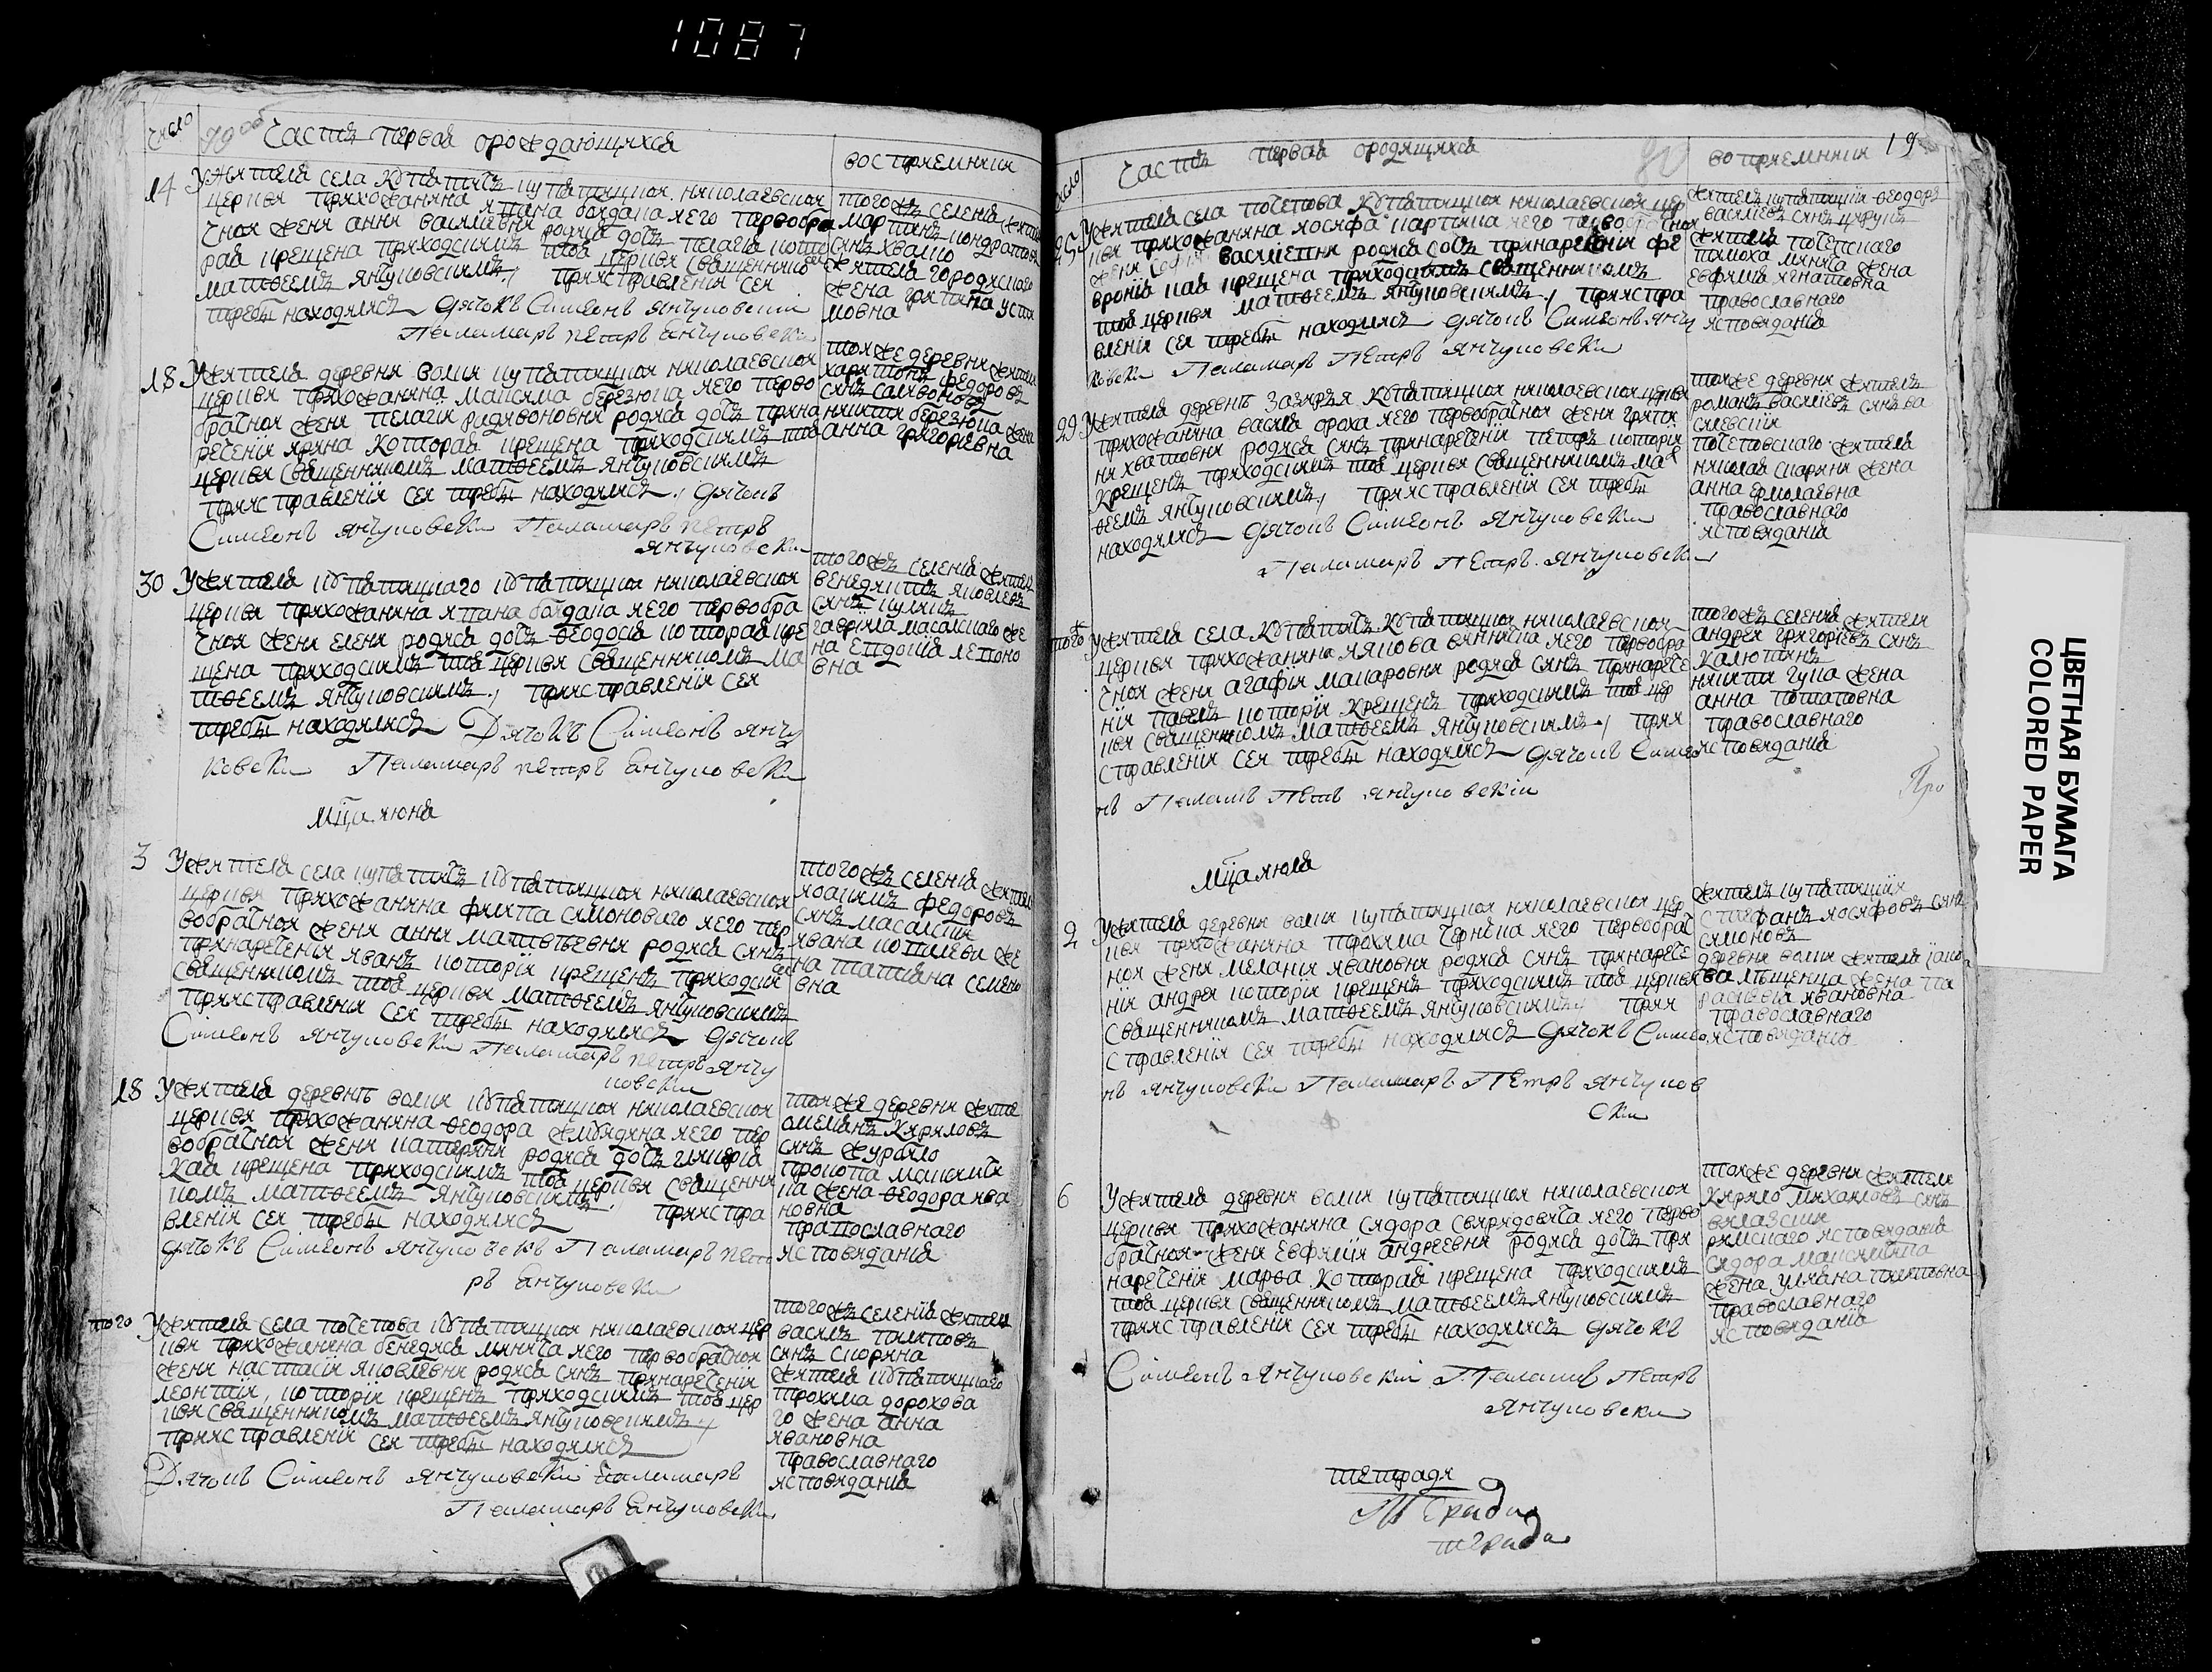 1087
число
79об
Часть первая орождающихся
восприемники
14
Ужителя села Купятичъ купятицкой николаевской
церкви прихожанина япана богдана иего первобра
чной жени анни василиевни родися дочь пелагiя кото
рая крещена приходскимъ тоя церкви священникомъ
матѳеемъ янчуковскимъ, приисправленiи сея
требы находились Дячокъ Симеонъ янчуковски
Паламаръ петръ янчуковски
тогожъ селенiя жител
мартинъ кондратовъ
синъ хвалко
жителя городискаго
жена гритана усти
мовна
18
Ужителя деревни волки купятицкой николаевской
церкви прихожанина максима березюка иего перво
брачной жени пелагiи родивоновни родися дочь прина
речении ирина которая крещена приходскимъ тоя
церкви священникомъ матѳеемъ янчуковскимъ
приисправленiи сея требы находились, дячокъ
Симеонъ янчуковски Паламаръ петръ
янчуковски
тояже деревни жител
харитонъ федоровъ
синъ саливоновъ
никити березюка жена
анна григориевна
30
Ужителя купятицкаго купятицкой николаевской
церкви прихожанина япана богдана иего первобра
чной жени елени родися дочь ѳеодосiя котораякре
щена приходскимъ тоя церкви священникомъ ма
тѳеемъ янчуковскимъ, приисправленiи сея
требы находились Дячокъ Симеонъ янчу
ковски Паламаръ петръ янчуковски
тогожъ селенiя жител
венедиктъ яковлевъ
синъ куликъ
гаврiила масалскаго же
на евдокiя леконо
вна
мца июня
3
Ужителя села купятичъ купятицкой николаевской
церкви прихожанина филипа симоновича иего пер
вобрачной жени анни матвѣевни родися синъ
принаречении иванъ которiи крещенъ приходски
священникомъ тоя церкви матѳеемъ янчуковскимъ
приисправленiи сея требы находились дячокъ
Симеонъ янчуковски Паламаръ петръ янчу
ковски
тогожъ селенiя жител
иоакимъ федоровъ
синъ масалски
ивана котлеви же
на татиана семено
вна
18
Ужителя деревнѣ волки купятицкой николаевской
церкви прихожанина ѳеодора жибядина иего пер
вобрачной жени катерини родися дочь гликерiя
кая крещена приходскимъ тоя церкви священни
комъ матѳеемъ янчуковскимъ, приисправ
вленiи сея требы находились
дячокъ Симеонъ янчуковски Паламаръ пет
ръ янчуковски
тояже деревни жите
омелианъ кириловъ
синъ журавло
прокопа максимя
ка жена ѳеодора ива
новна
православнаго
исповяданiя
того
Ужителя села почепова купятицкой николаевской цер
кви прихожанина бенедися минича иего первобрачной
жени настасiи яковлевни родися синъ принаречении
леонтiи, которiи крещенъ приходскимъ тоя цер
кви священникомъ матѳеемъ янчуковскимъ
приисправленiи сея требы находились
Дячокъ Симеонъ янчуковски паламаръ
Паламаръ янчуковски
тогожъ селенiя жител
василъ пилиповъ
синъ скорина
жителя купятицкаго
трохима дорохова
го жена анна
ивановна
православнаго
исповяданiя
число
Часть первая ородящихся
80
вопримники
19
25
Ужителя села почепова купятицкой николаевской цер
кви прихожанина иосифа партика иего первобрачной
жени софiи василиевни родися дочь принаречении фе
вронiя кая крещена приходскимъ священникомъ
тоя церкви матѳеемъ янчуковскимъ, приисправ
вленiи сея требы находились дячокъ Симеонъ янчу
ковски Паламаръ Петръ янчуковски
жителъ купятицкiи ѳеодоръ
василиевъ синъ цярукъ
жителя почепскаго
тимоха минича жена
евфимiя игнатовна
православнаго
исповяданiя
29
Ужителя деревнѣ зазиря купятицкой николаевской церкви
прихожанина василя ороха иего первобрачной жени грипи
ни хватовни родися синъ принаречении петръ которiи
крещенъ приходскимъ тоя церкви священникомъ мат
ѳеемъ янчуковскимъ, приисправленiи сея требы
находились дячокъ Симеонъ янчуковски
Паламаръ Петръ янчуковски
тояже деревни жителъ
романъ василиевъ синъ ва
силевски
почеповскаго жителя
николая скорини жена
анна ермолаевна
православнаго
исповяданiя
тогоже
Ужителя села купятичъ купятицкой николаевской
церкви прихожанина якова вянника иего первобра
чной жени агафiи макаровни родися синъ принарече
нiи павелъ которiи крещенъ приходскимъ тоя цер
кви священникомъ матѳеемъ янчуковскимъ, прии
справленiи сея требы находились дячокъ Симео
нъ Паламъ Петръ янчуковски
тогожъ селенiя жители
андреи григориевъ синъ
калютинъ
никити гупа жена
анна потаповна
православнаго
исповяданiя
Про
мца июля
2
Ужителя деревни волки купятицкой николаевской цер
кви прихожанина трохима черника иего первобрач
ной жени меланiи ивановни родися синъ принарече
нiи андреи которiи крещенъ приходскимъ тоя церкви
священникомъ матѳеемъ янчуковскимъ прии
справленiи сея требы находились дячокъ Симео
нъ янчуковски Паламаръ Петръ янчуков
ски
жителъ купятицкiи
стефанъ иосифовъ синъ
симоновъ
деревни волки жителя якова
валъщенца жена па
раскевiя ивановна
православнаго
исповяданiя
6
Ужителя деревни волки купятицкой николаевской
церкви прихожанина сидора свиридовича иего перво
брачной жени евфимiи андреевни родися дочь при
наречении марѳа которая крещена приходскимъ
тоя церкви священникомъ матѳеемъ янчуковскимъ
приисправленiи сея требы находились дячокъ
Симеонъ янчуковскiи Паламаръ Петръ
янчуковски
тояже деревни жителъ
кирило михаиловъ синъ
вялазски
римскаго исповяданiя
сидора максимяка
жена улиана пилиповна
православнаго
исповяданiя
тетрадя
ЦВЕТНАЯ БУМАГА
COLORED PAPER